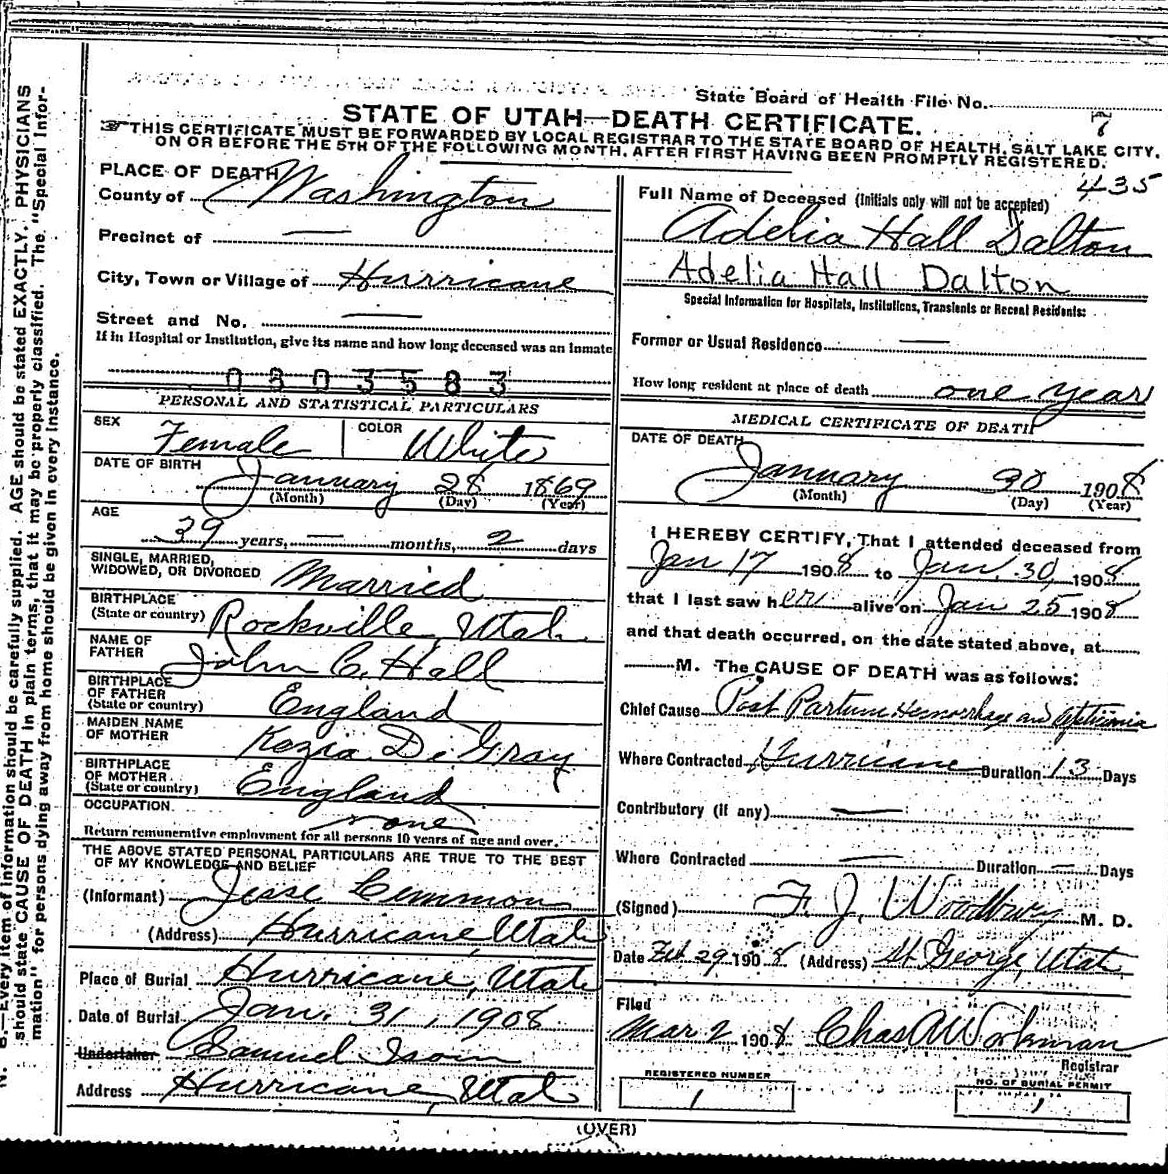 State Board of Health File No.
7
STATE OF UTAH—DEATH CERTIFICATE.
THIS CERTIFICATE MUST BE FORWARDED BY LOCAL REGISTRAR TO THE STATE BOARD OF HEALTH, SALT LAKE CITY,
ON OR BEFORE THE 5TH OF THE FOLLOWING MONTH, AFTER FIRST HAVING BEEN PROMPTLY REGISTERED.
435
PLACE OF DEATH
County of Washington
Precinct of —
City, Town or Village of Hurricane
Street and No. —
If in Hospital or Institution, give its name and how long deceased was an inmate
0803583
PERSONAL AND STATISTICAL PARTICULARS
SEX Female COLOR White
DATE OF BIRTH January 28 1869
(Month) (Day) (Year)
AGE
39 years, — months, 2 days
SINGLE, MARRIED,
WIDOWED, OR DIVORCED Married
BIRTHPLACE
(State or country) Rockville, Utah
NAME OF
FATHER John C. Hall
BIRTHPLACE
OF FATHER
(State or country) England
MAIDEN NAME
OF MOTHER Kezia DeGray
BIRTHPLACE
OF MOTHER
(State or country) England
OCCUPATION none
Return remunerative employment for all persons 10 years of age and over.
THE ABOVE STATED PERSONAL PARTICULARS ARE TRUE TO THE BEST
OF MY KNOWLEDGE AND BELIEF
(Informant) Jesse Lemmon
(Address) Hurricane, Utah
Place of Burial Hurricane, Utah
Date of Burial Jan. 31, 1908
Undertaker Samuel Isom
Address Hurricane, Utah
Full Name of Deceased (Initials only will not be accepted)
Adelia Hall Dalton
Adelia Hall Dalton
Special Information for Hospitals, Institutions, Transients or Recent Residents:
Former or Usual Residence —
How long resident at place of death one year
MEDICAL CERTIFICATE OF DEATH
DATE OF DEATH
January 30 1908
(Month) (Day) (Year)
I HEREBY CERTIFY, That I attended deceased from
Jan 17 1908 to Jan. 30, 1908
that I last saw her alive on Jan 25 1908
and that death occurred, on the date stated above, at
M. The CAUSE OF DEATH was as follows:
Chief Cause Post Partum Hemorrhage and
Where Contracted Hurricane Duration 13 Days
Contributory (if any) —
Where Contracted — Duration — Days
(Signed) F. J. Woodbury M. D.
Date Feb. 29 1908 (Address) St. George, Utah
Filed
Mar 2 1908 Chas A Workman
Registrar
REGISTERED NUMBER
1
NO. OF BURIAL PERMIT
1
(OVER)
N. B.—Every item of information should be carefully supplied. AGE should be stated EXACTLY. PHYSICIANS
should state CAUSE OF DEATH in plain terms, that it may be properly classified. The "Special Infor-
mation" for persons dying away from home should be given in every instance.